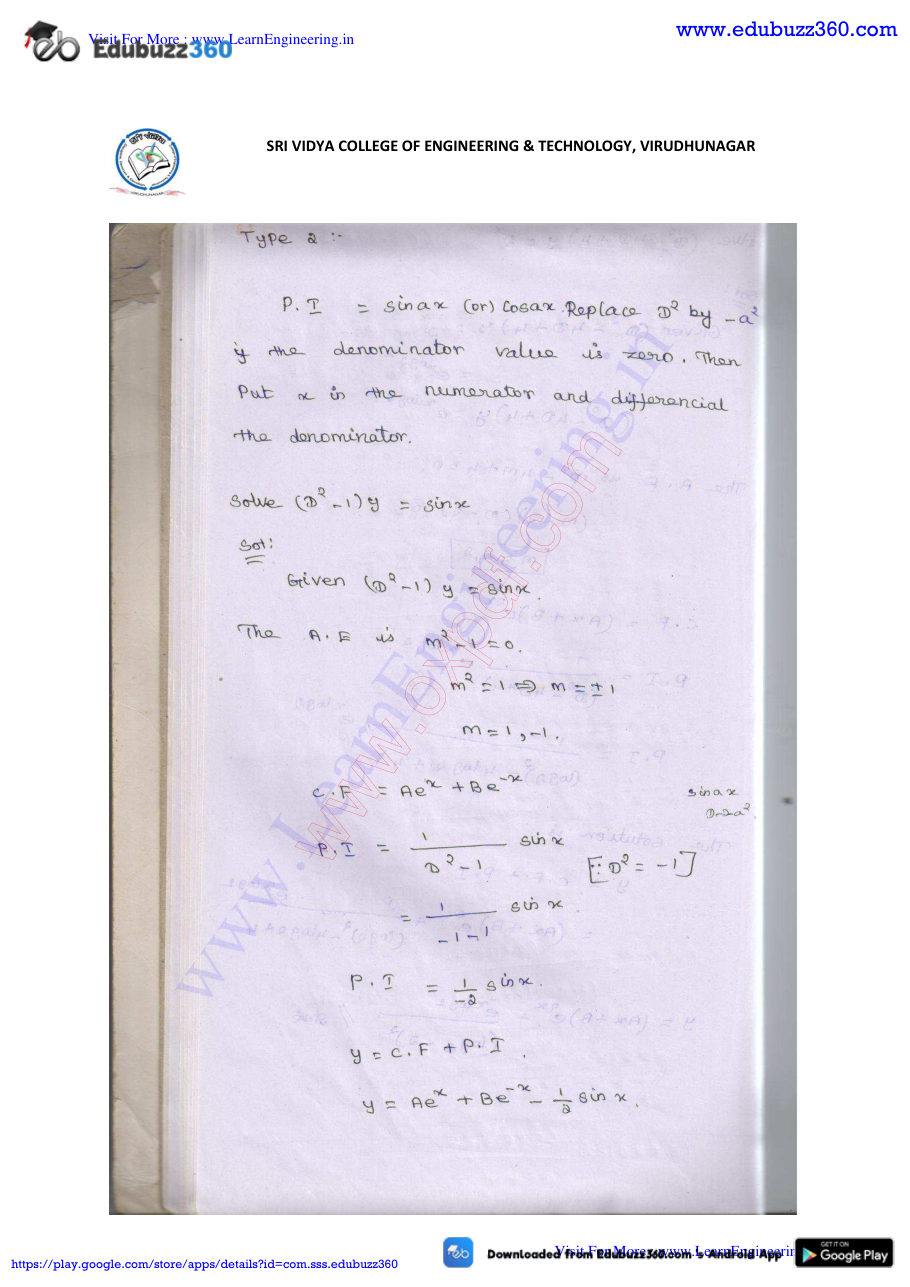 Visit For More : www.LearnEngineering.in
Edubuzz360
www.edubuzz360.com
SRI VIDYA COLLEGE OF ENGINEERING & TECHNOLOGY, VIRUDHUNAGAR
Type 2 :-
P. I = sinax (or) cosax. Replace D² by -a²
if the denominator value is zero. Then
Put x in the numerator and differencial
the denominator.
Solve (D² - 1) y = sinx
Sol:
Given (D² - 1) y = sinx.
The A. E is m² - 1 = 0.
m² = 1 ⇒ m = ± 1
m = 1, -1.
C.F = Ae^x + Be^-x
sinax
P.I = 1/(D² - 1) sin x [∵ D² = -1]
= 1/(-1-1) sin x.
P.I = 1/-2 sinx.
y = C.F + P.I.
y = Ae^x + Be^-x - 1/2 sin x.
www.LearnEngineering.in
https://play.google.com/store/apps/details?id=com.sss.edubuzz360
Downloaded from Edubuzz360.com 's Android App
GET IT ON
Google Play